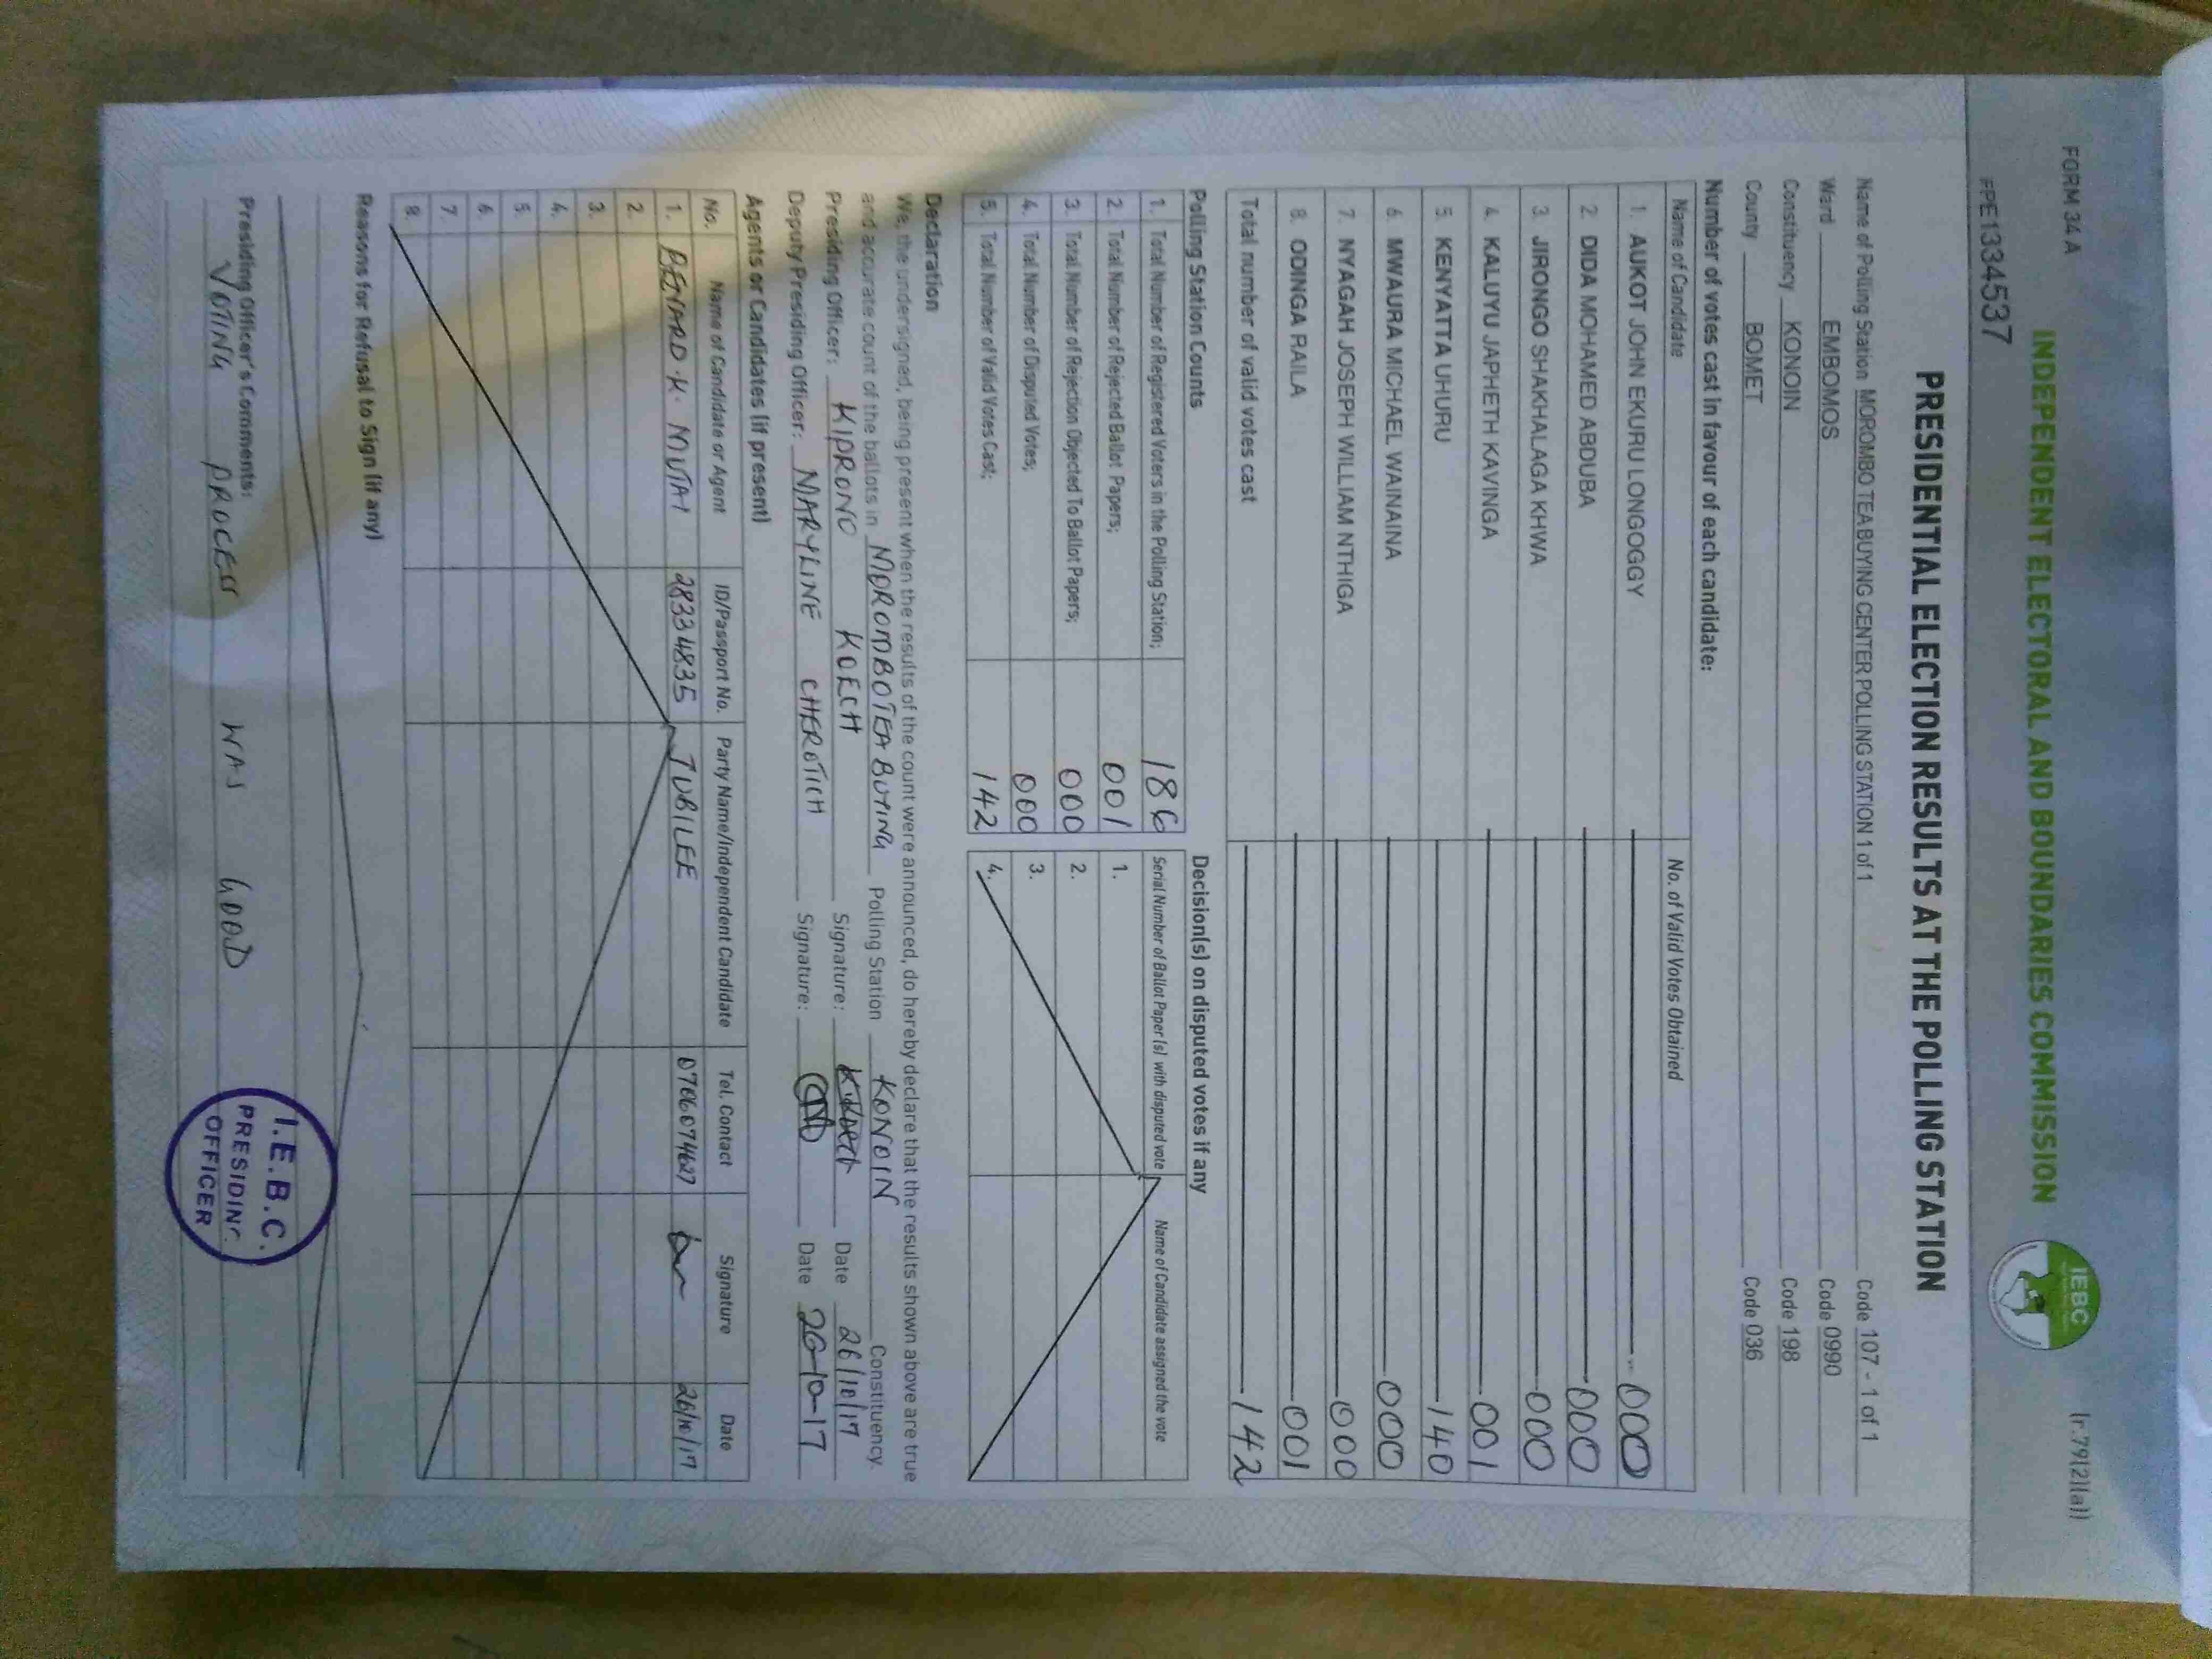 FORM 34 A
(r.79(2)(a))
INDEPENDENT ELECTORAL AND BOUNDARIES COMMISSION
IEBC
PPE1334537
PRESIDENTIAL ELECTION RESULTS AT THE POLLING STATION
Name of Polling Station MOROMBO TEA BUYING CENTER POLLING STATION 1 of 1 Code 107 - 1 of 1
Ward EMBOMOS Code 0990
Constituency KONOIN Code 198
County BOMET Code 036
Number of votes cast in favour of each candidate:
Name of Candidate No. of Valid Votes Obtained
1. AUKOT JOHN EKURU LONGOGGY 000
2. DIDA MOHAMED ABDUBA 000
3. JIRONGO SHAKHALAGA KHWA 000
4. KALUYU JAPHETH KAVINGA 001
5. KENYATTA UHURU 140
6. MWAURA MICHAEL WAINAINA 000
7. NYAGAH JOSEPH WILLIAM NTHIGA 000
8. ODINGA RAILA 001
Total number of valid votes cast 142
Polling Station Counts Decision(s) on disputed votes if any
1. Total Number of Registered Voters in the Polling Station; 186 Serial Number of Ballot Paper (s) with disputed vote Name of Candidate assigned the vote
2. Total Number of Rejected Ballot Papers; 001 1.
3. Total Number of Rejection Objected To Ballot Papers; 000 2.
4. Total Number of Disputed Votes; 000 3.
5. Total Number of Valid Votes Cast; 142 4.
Declaration
We, the undersigned, being present when the results of the count were announced, do hereby declare that the results shown above are true
and accurate count of the ballots in MOROMBO TEA BUYING Polling Station KONOIN Constituency.
Presiding Officer: KIPRONO KOECH Signature: Date 26/10/17
Deputy Presiding Officer: MARYLINE CHEROTICH Signature: Date 26-10-17
Agents or Candidates (if present)
No. Name of Candidate or Agent ID/Passport No. Party Name/Independent Candidate Tel. Contact Signature Date
1. BENARD K. MUTAI 28334835 JUBILEE 0706074627 26/10/17
2.
3.
4.
5.
6.
7.
8.
Reasons for Refusal to Sign (if any)
Presiding Officer's Comments:
VOTING PROCESS WAS GOOD
I.E.B.C.
PRESIDING
OFFICER